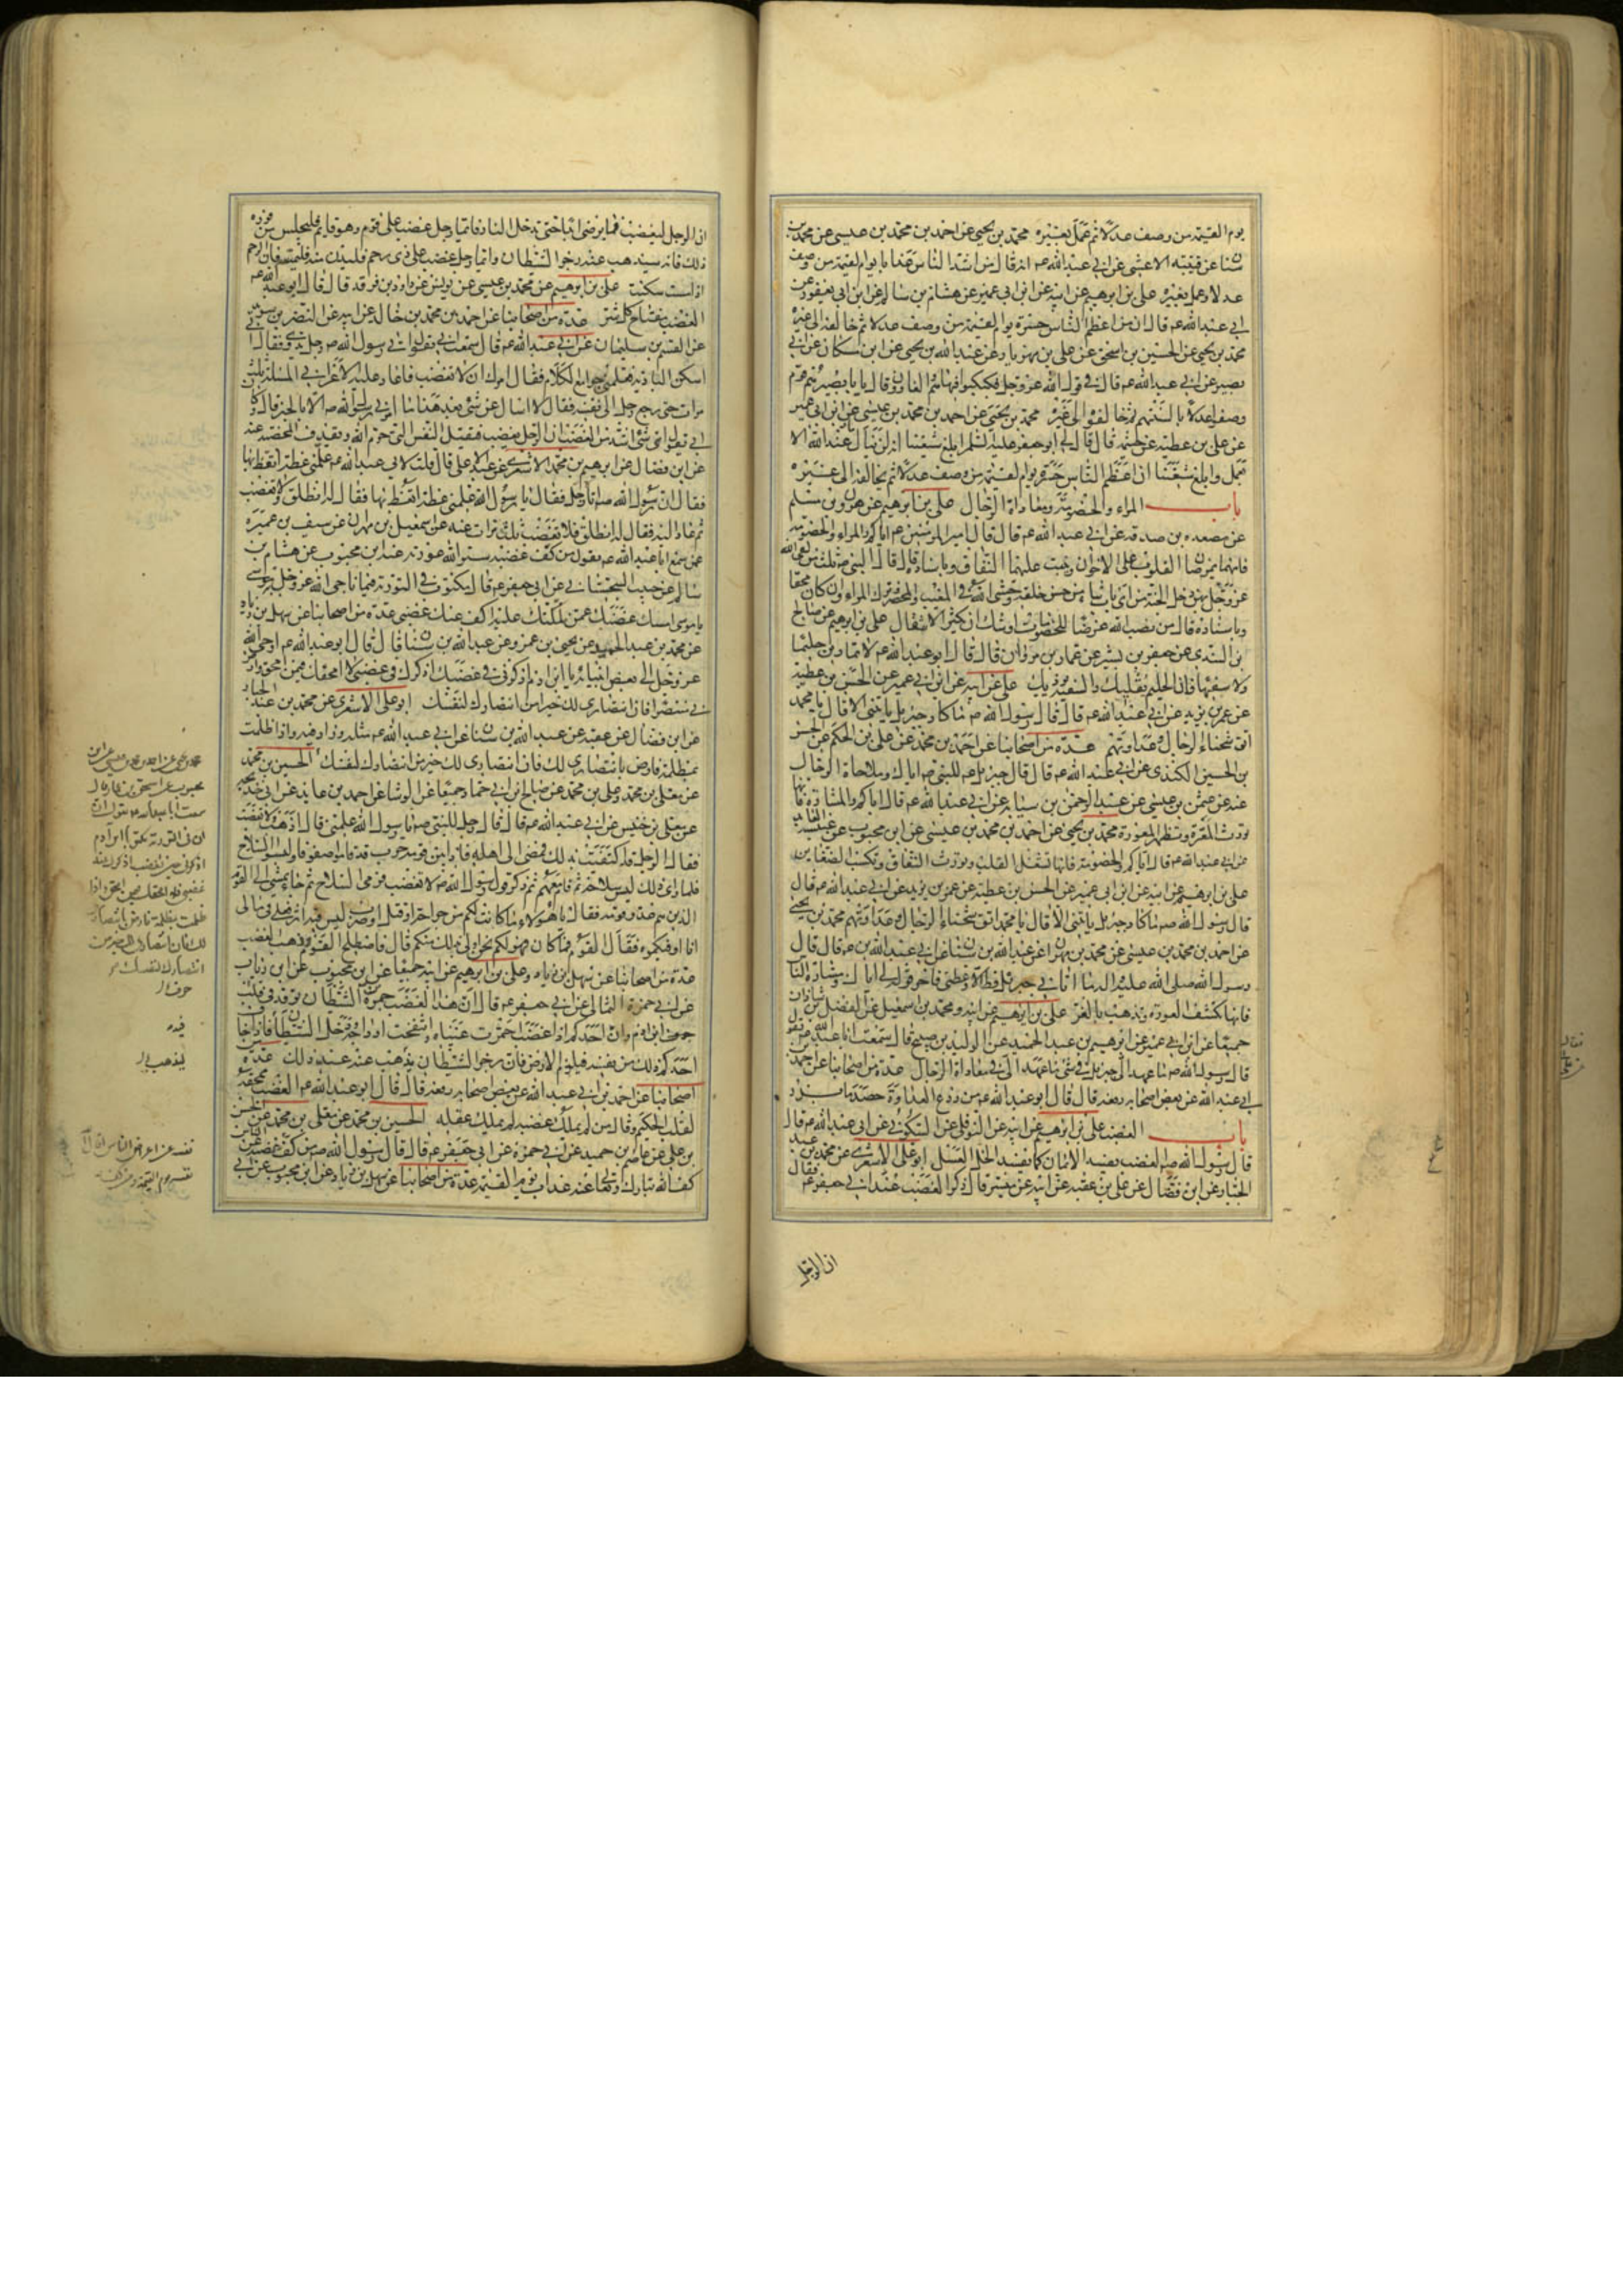 يوم القيمة من وصف عدلا ثم عمل بغيره محمد بن يحيى عن احمد بن محمد بن عيسى عن محمد بن
سنان عن قتيبة الاعشى عن ابي عبد الله عم انه قال من اشد الناس عذابا يوم القيمة من وصف
عدلا وعمل بغيره علي بن ابرهيم عن ابيه عن ابن ابي عمير عن هشام بن سالم عن ابن ابي يعفور عن
ابي عبد الله عم قال ان من اعظم الناس حسرة يوم القيمة من وصف عدلا ثم خالفه الى غيره
محمد بن يحيى عن الحسين بن اسحق عن علي بن مهزيار عن عبد الله بن يحيى عن ابن مسكان عن ابي
بصير عن ابي عبد الله عم قال في قول الله عز وجل فكبكبوا فيها هم والغاون قال يا با بصير هم قوم
وصفوا عدلا بالسنتهم ثم خالفوا الى غيره محمد بن يحيى عن احمد بن محمد بن عيسى عن ابن ابي عمير
عن علي بن عطية عن خيثمة قال قال لي ابو جعفر عليه السلم ابلغ شيعتنا انه لن ينال ما عند الله الا
بعمل وابلغ شيعتنا ان اعظم الناس حسرة يوم القيمة من وصف عدلا ثم يخالفه الى غيره
باب المراء والخصومة ومعاداة الرجال علي بن ابرهيم عن هرون بن مسلم
عن مسعدة بن صدقة عن ابي عبد الله عم قال قال امير المؤمنين عم اياكم والمراء والخصومة
فانهما يمرضان القلوب على الاخوان وينبت عليهما النفاق وباسناده قال قال النبي ص ثلث من لقي الله
عز وجل بهن دخل الجنة من اي باب شاء من حسن خلقه وخشي الله في المغيب والمحضر وترك المراء وان كان محقا
وباسناده قال من نصب الله غرضا للخصومات اوشك ان يكثر الانتقال علي بن ابرهيم عن صالح
بن السندي عن جعفر بن بشير عن عمار بن مروان قال قال ابو عبد الله عم لا تمارين حليما
ولا سفيها فان الحليم يقليك والسفيه يوذيك علي عن ابيه عن ابن ابي عمير عن الحسن بن عطية
عن عمر بن يزيد عن ابي عبد الله عم قال قال رسول الله ص ما كاد جبرئيل ياتيني الا قال يا محمد
اتق شحناء الرجال وعداوتهم عدة من اصحابنا عن احمد بن محمد عن علي بن الحكم عن الحسن
بن الحسين الكندي عن ابي عبد الله عم قال قال جبرئيل عم للنبي ص اياك وملاحاة الرجال
عنه عن عثمن بن عيسى عن عبد الرحمن بن سيابة عن ابي عبد الله عم قال اياكم والمشادة فانها
تورث المعرة وتظهر المعورة محمد بن يحيى عن احمد بن محمد بن عيسى عن ابن محبوب عن عنبسة العابد
عن ابي عبد الله عم قال اياكم والخصومة فانها تشغل القلب وتورث النفاق وتكسب الضغاين
علي بن ابرهيم عن ابيه عن ابن ابي عمير عن الحسن بن عطية عن عمر بن يزيد عن ابي عبد الله عم قال
قال رسول الله ص ما كاد جبرئيل ياتيني الا قال يا محمد اتق شحناء الرجال وعداوتهم محمد بن يحيى
عن احمد بن محمد بن عيسى عن محمد بن مهران عن عبد الله بن سنان عن ابي عبد الله عم قال قال
رسول الله صلى الله عليه واله ما اتاني جبرئيل قط الا وعظني فاخر قوله لي اياك ومشارة الناس
فانها تكشف العورة وتذهب بالعز علي بن ابرهيم عن ابيه ومحمد بن اسمعيل عن الفضل بن شاذان
جميعا عن ابن ابي عمير عن ابرهيم بن عبد الحميد عن الوليد بن صبيح قال سمعت ابا عبد الله عم يقول
قال رسول الله ص ما عهد الي جبرئيل في شيء ما عهد الي في معاداة الرجال عدة من اصحابنا عن احمد بن
ابي عبد الله عن بعض اصحابه رفعه قال قال ابو عبد الله عم من زرع العداوة حصد ما بذر
باب الغضب علي بن ابرهيم عن ابيه عن النوفلي عن السكوني عن ابي عبد الله عم قال
قال رسول الله ص الغضب يفسد الايمان كما يفسد الخل العسل ابو علي الاشعري عن محمد بن عبد
الجبار عن ابن فضال عن علي بن عقبة عن ابيه عن ميسر قال ذكر الغضب عند ابي جعفر عم فقال
ان الرجل
ان الرجل ليغضب فما يرضى ابدا حتى يدخل النار فايما رجل غضب على قوم وهو قايم فليجلس من فوره
ذلك فانه سيذهب عنه رجز الشيطان وايما رجل غضب على ذي رحم فليدن منه فليمسه فان الرحم
اذا مست سكنت علي بن ابرهيم عن محمد بن عيسى عن يونس عن داود بن فرقد قال قال ابو عبد الله عم
الغضب مفتاح كل شر عدة من اصحابنا عن احمد بن محمد بن خالد عن ابيه عن النضر بن سويد
عن القسم بن سليمان عن ابي عبد الله عم قال سمعت ابي يقول اتى رسول الله ص رجل بدوي فقال اني
اسكن البادية فعلمني جوامع الكلام فقال امرك ان لا تغضب فاعاد عليه الاعرابي المسئلة ثلث
مرات حتى رجع الرجل الى نفسه فقال لا اسال عن شيء بعد هذا ما امرني رسول الله ص الا بالخير قال وكان
ابي يقول اي شيء اشد من الغضب ان الرجل يغضب فيقتل النفس التي حرم الله ويقذف المحصنة عنه
عن ابن فضال عن ابرهيم بن محمد الاشعري عن عبد الاعلى قال قلت لابي عبد الله عم علمني عظة اتعظ بها
فقال ان رسول الله ص اتاه رجل فقال يا رسول الله علمني عظة اتعظ بها فقال له انطلق ولا تغضب
ثم عاد اليه فقال له انطلق فلا تغضب ثلث مرات عنه عن اسمعيل بن مهران عن سيف بن عميرة
عمن سمع ابا عبد الله عم يقول من كف غضبه ستر الله عورته عنه عن ابن محبوب عن هشام بن
سالم عن حبيب السجستاني عن ابي جعفر عم قال مكتوب في التورية فيما ناجى الله عز وجل به موسى
يا موسى امسك غضبك عمن ملكتك عليه اكف عنك غضبي عدة من اصحابنا عن سهل بن زياد
عن محمد بن عبد الحميد عن يحيى بن عمرو عن عبد الله بن سنان قال قال ابو عبد الله عم اوحى الله
عز وجل الى بعض انبيائه يا ابن ادم اذكرني في غضبك اذكرك في غضبي لا امحقك فيمن امحق وارض
بي منتصرا فان انتصاري لك خير من انتصارك لنفسك ابو علي الاشعري عن محمد بن عبد الجبار
عن ابن فضال عن علي بن عقبة عن عبد الله بن سنان عن ابي عبد الله عم مثله وزاد فيه واذا ظلمت
بمظلمة فارض بانتصاري لك فان انتصاري لك خير من انتصارك لنفسك الحسين بن محمد
عن معلى بن محمد وعلي بن محمد عن صالح بن ابي حماد جميعا عن الوشا عن احمد بن عايذ عن ابي خديجة
عن معلى بن خنيس عن ابي عبد الله عم قال قال رجل للنبي ص يا رسول الله علمني قال اذهب ولا تغضب
فقال الرجل قد اكتفيت بذلك فمضى الى اهله فاذا بين قومه حرب قد قاموا صفوفا ولبسوا السلاح
فلما راى ذلك لبس سلاحه ثم قام معهم ثم ذكر قول رسول الله ص لا تغضب فرمى السلاح ثم جاء يمشي الى القوم
الذين هم عدو قومه فقال يا هؤلاء ما كانت لكم من جراحة او قتل او ضرب ليس فيه اثر فعلي في مالي
انا اوفيكموه فقال القوم فما كان فهو لكم نحن اولى بذلك منكم قال فاصطلح القوم وذهب الغضب
عدة من اصحابنا عن سهل بن زياد وعلي بن ابرهيم عن ابيه جميعا عن ابن محبوب عن ابن رئاب
عن ابي حمزة الثمالي عن ابي جعفر عم قال ان هذا الغضب جمرة من الشيطان توقد في قلب
ابن ادم وان احدكم اذا غضب احمرت عيناه وانتفخت اوداجه ودخل الشيطان فيه فاذا خاف
احدكم ذلك من نفسه فليلزم الارض فان رجز الشيطان يذهب عنه عند ذلك عدة من
اصحابنا عن احمد بن ابي عبد الله عن بعض اصحابه رفعه قال قال ابو عبد الله عم الغضب ممحقة
لقلب الحكيم وقال من لم يملك غضبه لم يملك عقله الحسين بن محمد عن معلى بن محمد عن الحسن
بن علي عن عاصم بن حميد عن ابي حمزة عن ابي جعفر عم قال قال رسول الله ص من كف غضبه عن الناس
كف الله تبارك وتعالى عنه عذاب يوم القيمة عدة من اصحابنا عن سهل بن زياد عن ابن محبوب عن ابي
محمد بن يحيى عن احمد بن محمد بن عيسى عن ابن
محبوب عن اسحق بن عمار قال
سمعت ابا عبد الله عم يقول ان
في التورية مكتوبا ابن ادم
اذكرني حين تغضب اذكرك عند
غضبي فلا امحقك فيمن امحق واذا
ظلمت بمظلمة فارض بانتصاري
لك فان انتصاري لك خير من
انتصارك لنفسك
فيه
ليذهب
نفسه عن اعراض الناس اقال الله
نفسه يوم القيمة ومن كف